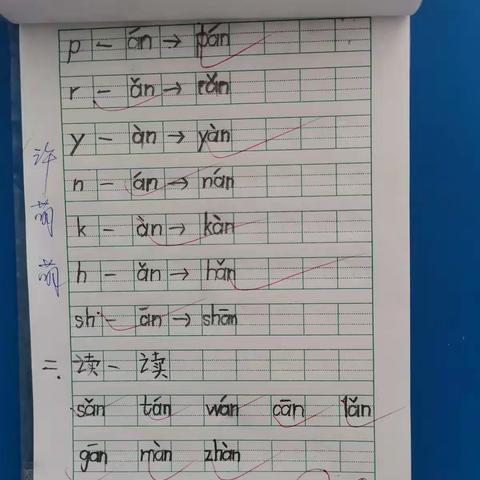 p - án → pán
r - ǎn → rǎn
y - àn → yàn
n - án → nán
k - àn → kàn
h - ǎn → hǎn
sh - ān → shān
二. 读一读
sǎn tán wán cān lǎn
gān màn zhàn
许